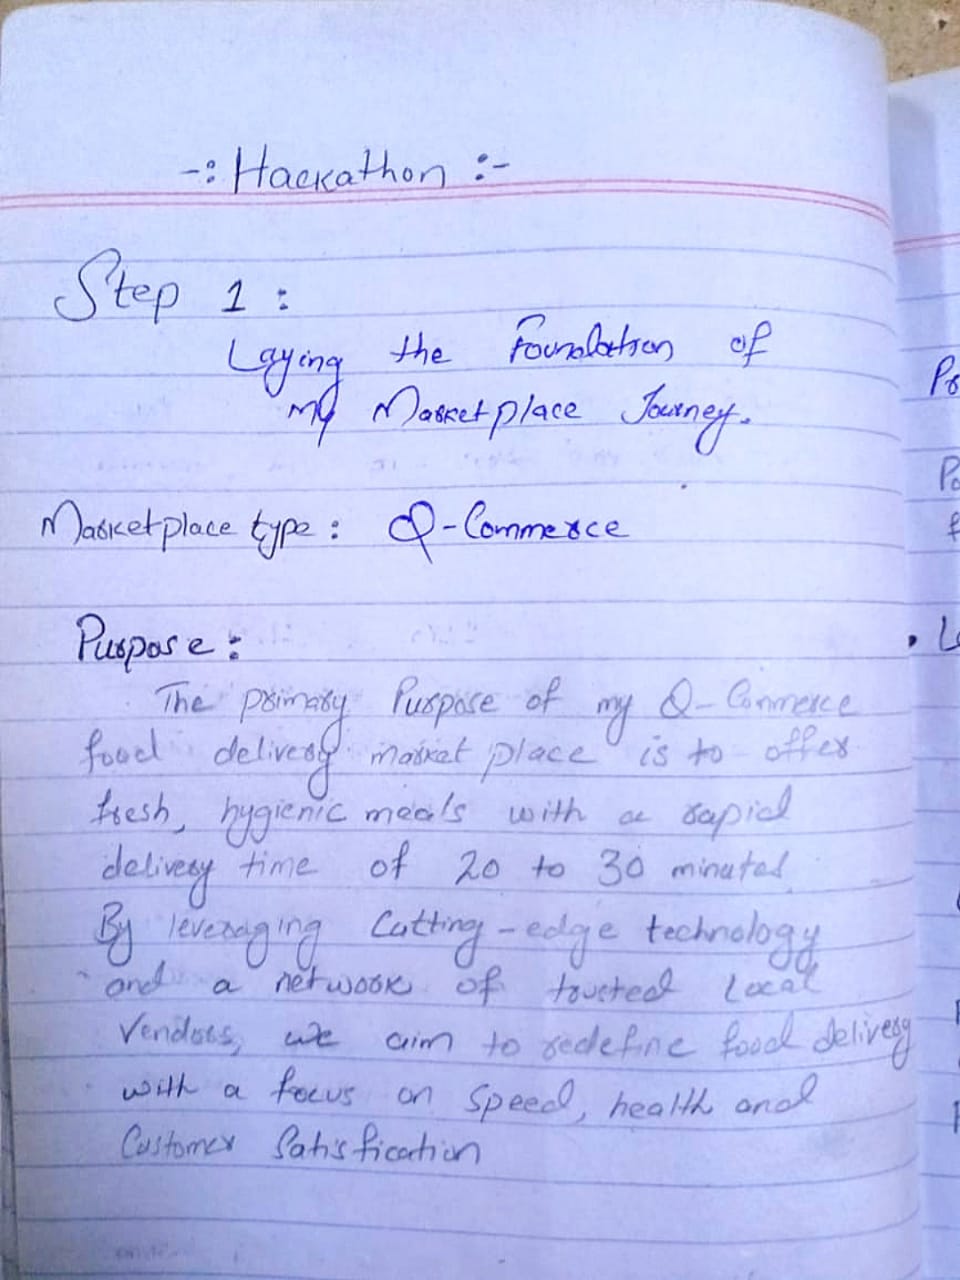 -: Hackathon :-
Step 1 :
Laying the Foundation of
my Marketplace Journey.
Marketplace type : Q-Commerce
Purpose :
The primary Purpose of my Q-Commerce
food delivery market place is to offer
fresh, hygienic meals with a rapid
delivery time of 20 to 30 minutes
By leveraging Cutting-edge technology
and a network of trusted Local
Vendors, we aim to redefine food delivery
with a focus on Speed, health and
Customer Satisfication